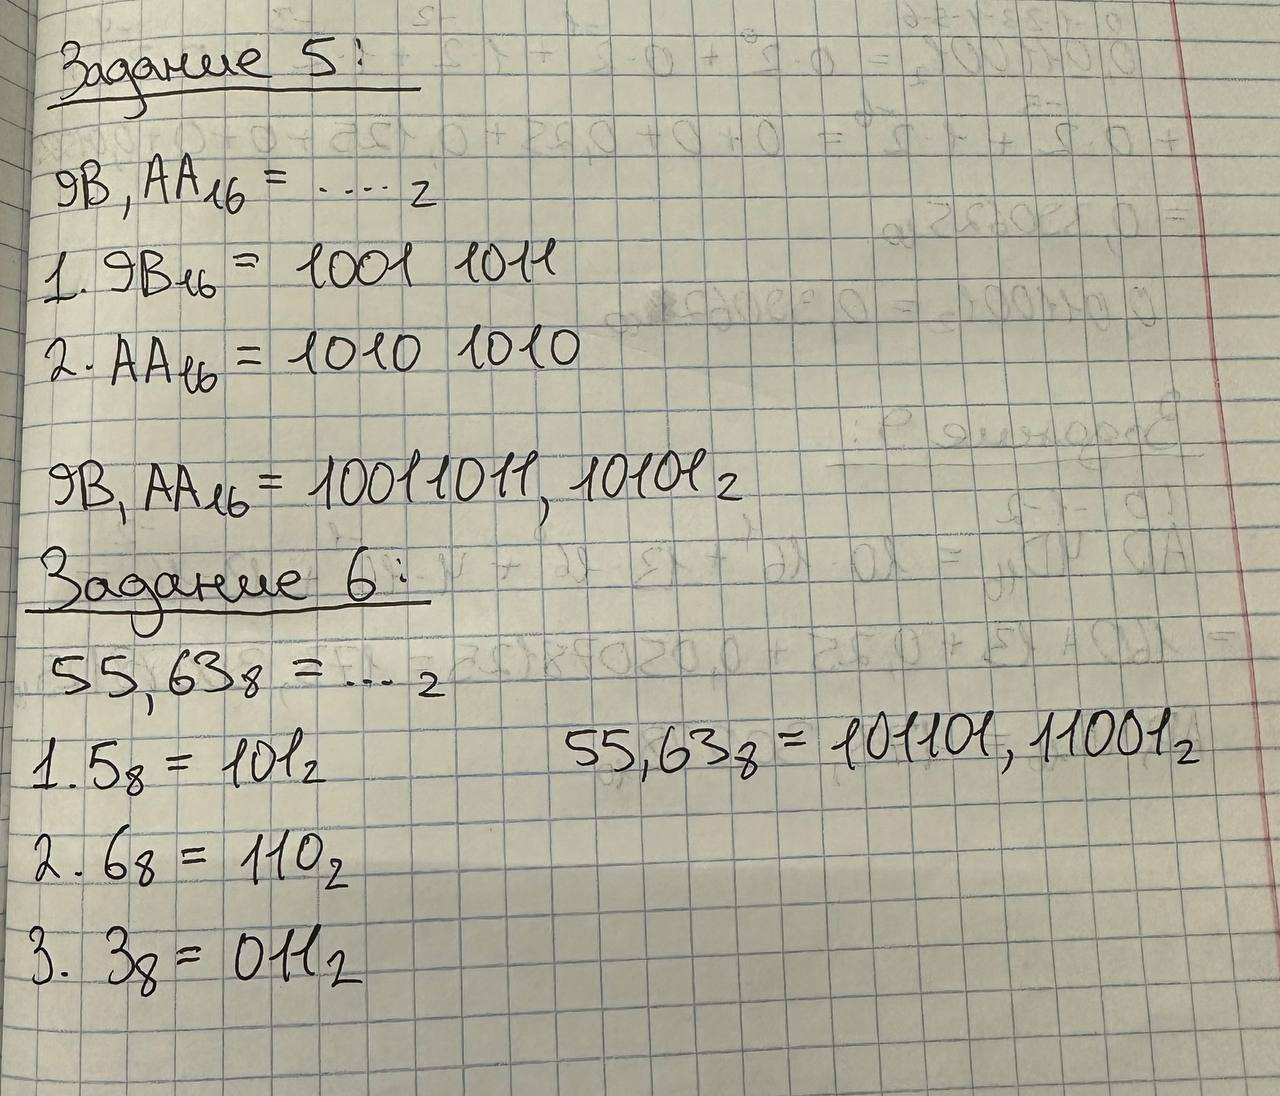 Задание 5:
9B, AA16 = .... 2
1. 9B16 = 1001 1011
2. AA16 = 1010 1010
9B, AA16 = 10011011, 10101 2
Задание 6:
55,63 8 = .... 2
1. 5 8 = 101 2
55,63 8 = 101101, 11001 2
2. 6 8 = 110 2
3. 3 8 = 011 2